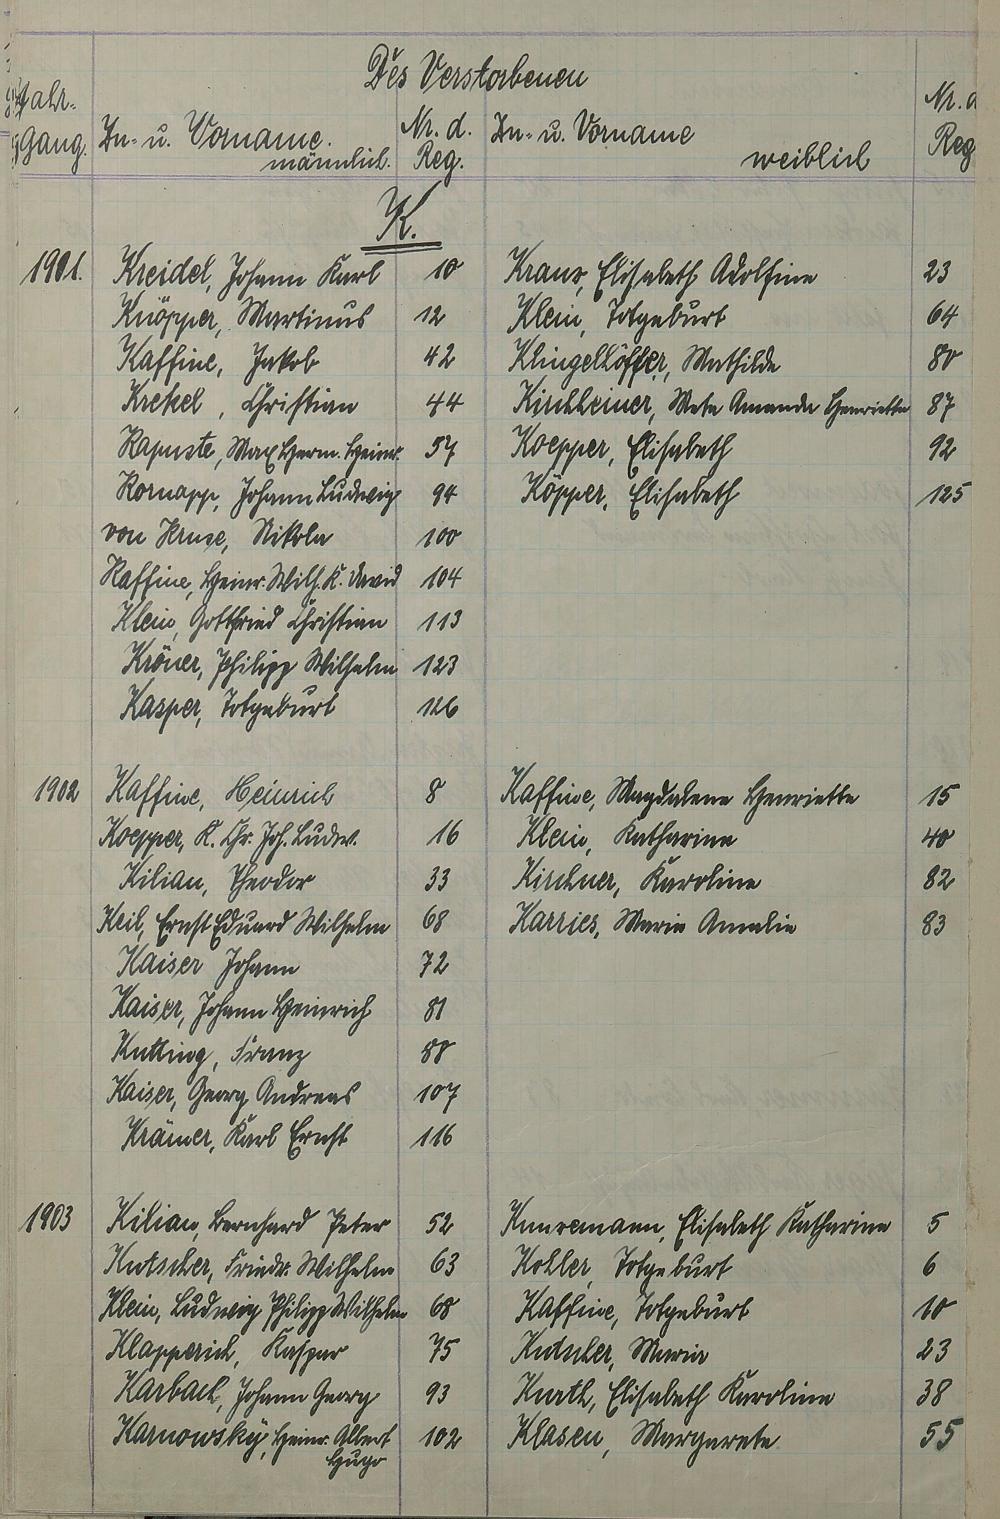 Des Verstorbenen
Jahr-
Gang.
Zn- u. Vorname.
männlich.
Nr. d.
Reg.
Zn- u. Vorname
weiblich
Nr. d
Reg
K.
1901. Kreidel, Johann Karl 10 Kraus, Elisabeth Adolfine 23
Knöpper, Martinus 12 Klein, Totgeburt 64
Kaffine, Jakob 42 Klingelhöffer, Mathilde 80
Krekel, Christian 44 Kirchheiner, Meta Amanda Henriette 87
Kapuste, Max Herm. Heinr. 57 Koepper, Elisabeth 92
Kornapp, Johann Ludwig 94 Köpper, Elisabeth 125
von Kruse, Nikola 100
Kaffine, Heinr. Wilh. K. David 104
Klein, Gottfried Christian 113
Kröner, Philipp Wilhelm 123
Kasper, Totgeburt 126
1902 Kaffine, Heinrich 8 Kaffine, Magdalene Henriette 15
Koepper, K. Chr. Joh. Ludw. 16 Klein, Katharina 40
Kilian, Theodor 33 Kirchner, Karoline 82
Keil, Ernst Eduard Wilhelm 68 Karries, Maria Amalie 83
Kaiser Johann 72
Kaiser, Johann Heinrich 81
Kutting, Franz 88
Kaiser, Georg Andreas 107
Krämer, Karl Ernst 116
1903 Kilian, Bernhard Peter 52 Elisabeth Katharina 5
Kutscher, Friedr. Wilhelm 63 Kohler, Totgeburt 6
Klein, Ludwig Philipp Wilhelm 68 Kaffine, Totgeburt 10
Klapperich, Kaspar 75 Kutscher, Maria 23
Karbach, Johann Georg 93 Kurth, Elisabeth Karoline 38
Karnowsky, Heinr. Albert 102 Klasen, Margarete 55
Hugo